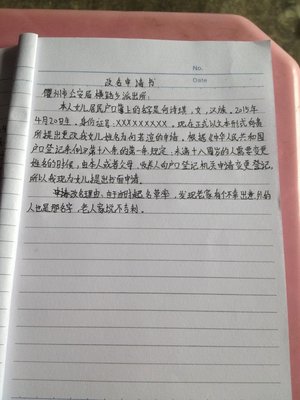 No.
Date
改名申请书
衢州市公安局横路乡派出所：
本人女儿居民户口簿上的名字是向诗琪，女，汉族。2015年
4月20日生，身份证号：XXXXXXXXXX。现在正式以文本形式向贵
所提出更改我女儿姓名为向若渲的申请。根据《中华人民共和国
户口登记条例》第十八条的第一条规定：未满十八周岁的人需要变更
姓名的时候，由本人或者父母、收养人向户口登记机关申请变更登记，
所以我现为女儿提出书面申请。
申请改名理由：由于当时起名草率，发现老家有个不幸出意外的
人也是那名字，老人家说不吉利。